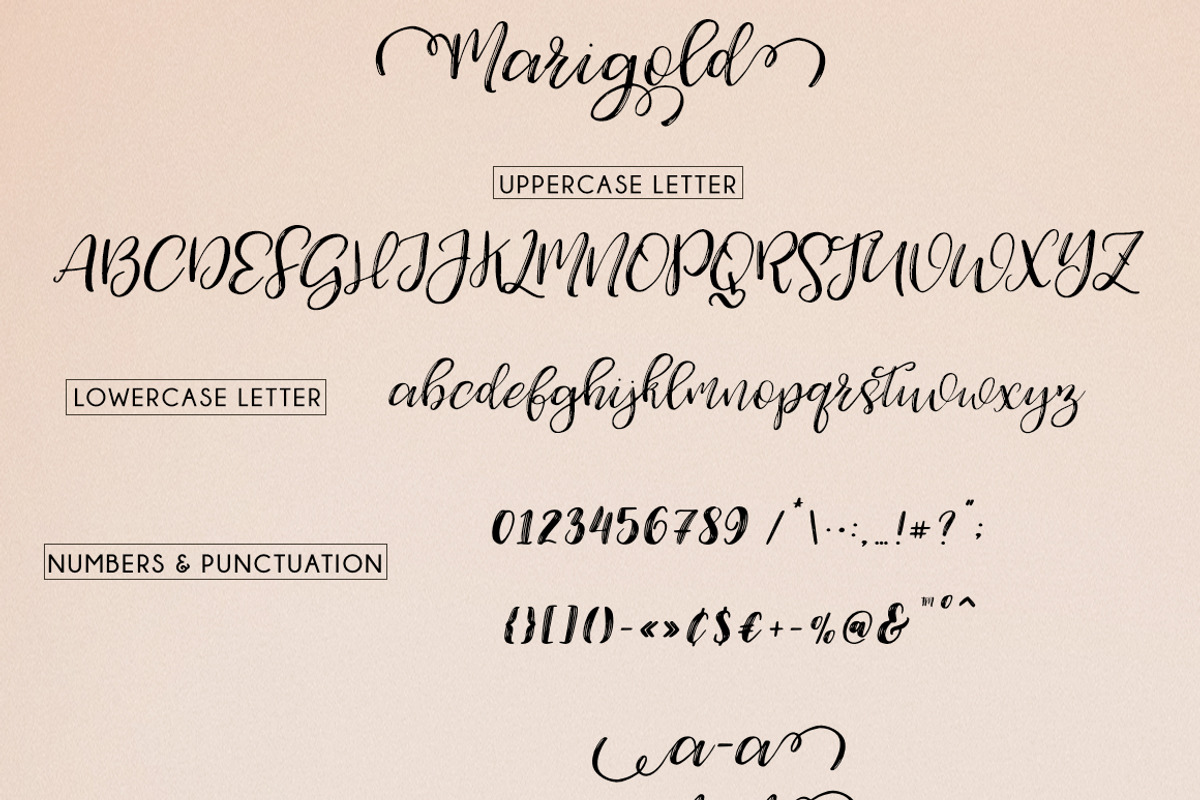 Marigold
UPPERCASE LETTER
ABCDEFGHIJKLMNOPQRSTUVWXYZ
LOWERCASE LETTER
abcdefghijklmnopqrstuvwxyz
0123456789 /*\··:,...!#?";
NUMBERS & PUNCTUATION
{}[]()-«»¢$€+-%@&™°^
a-a